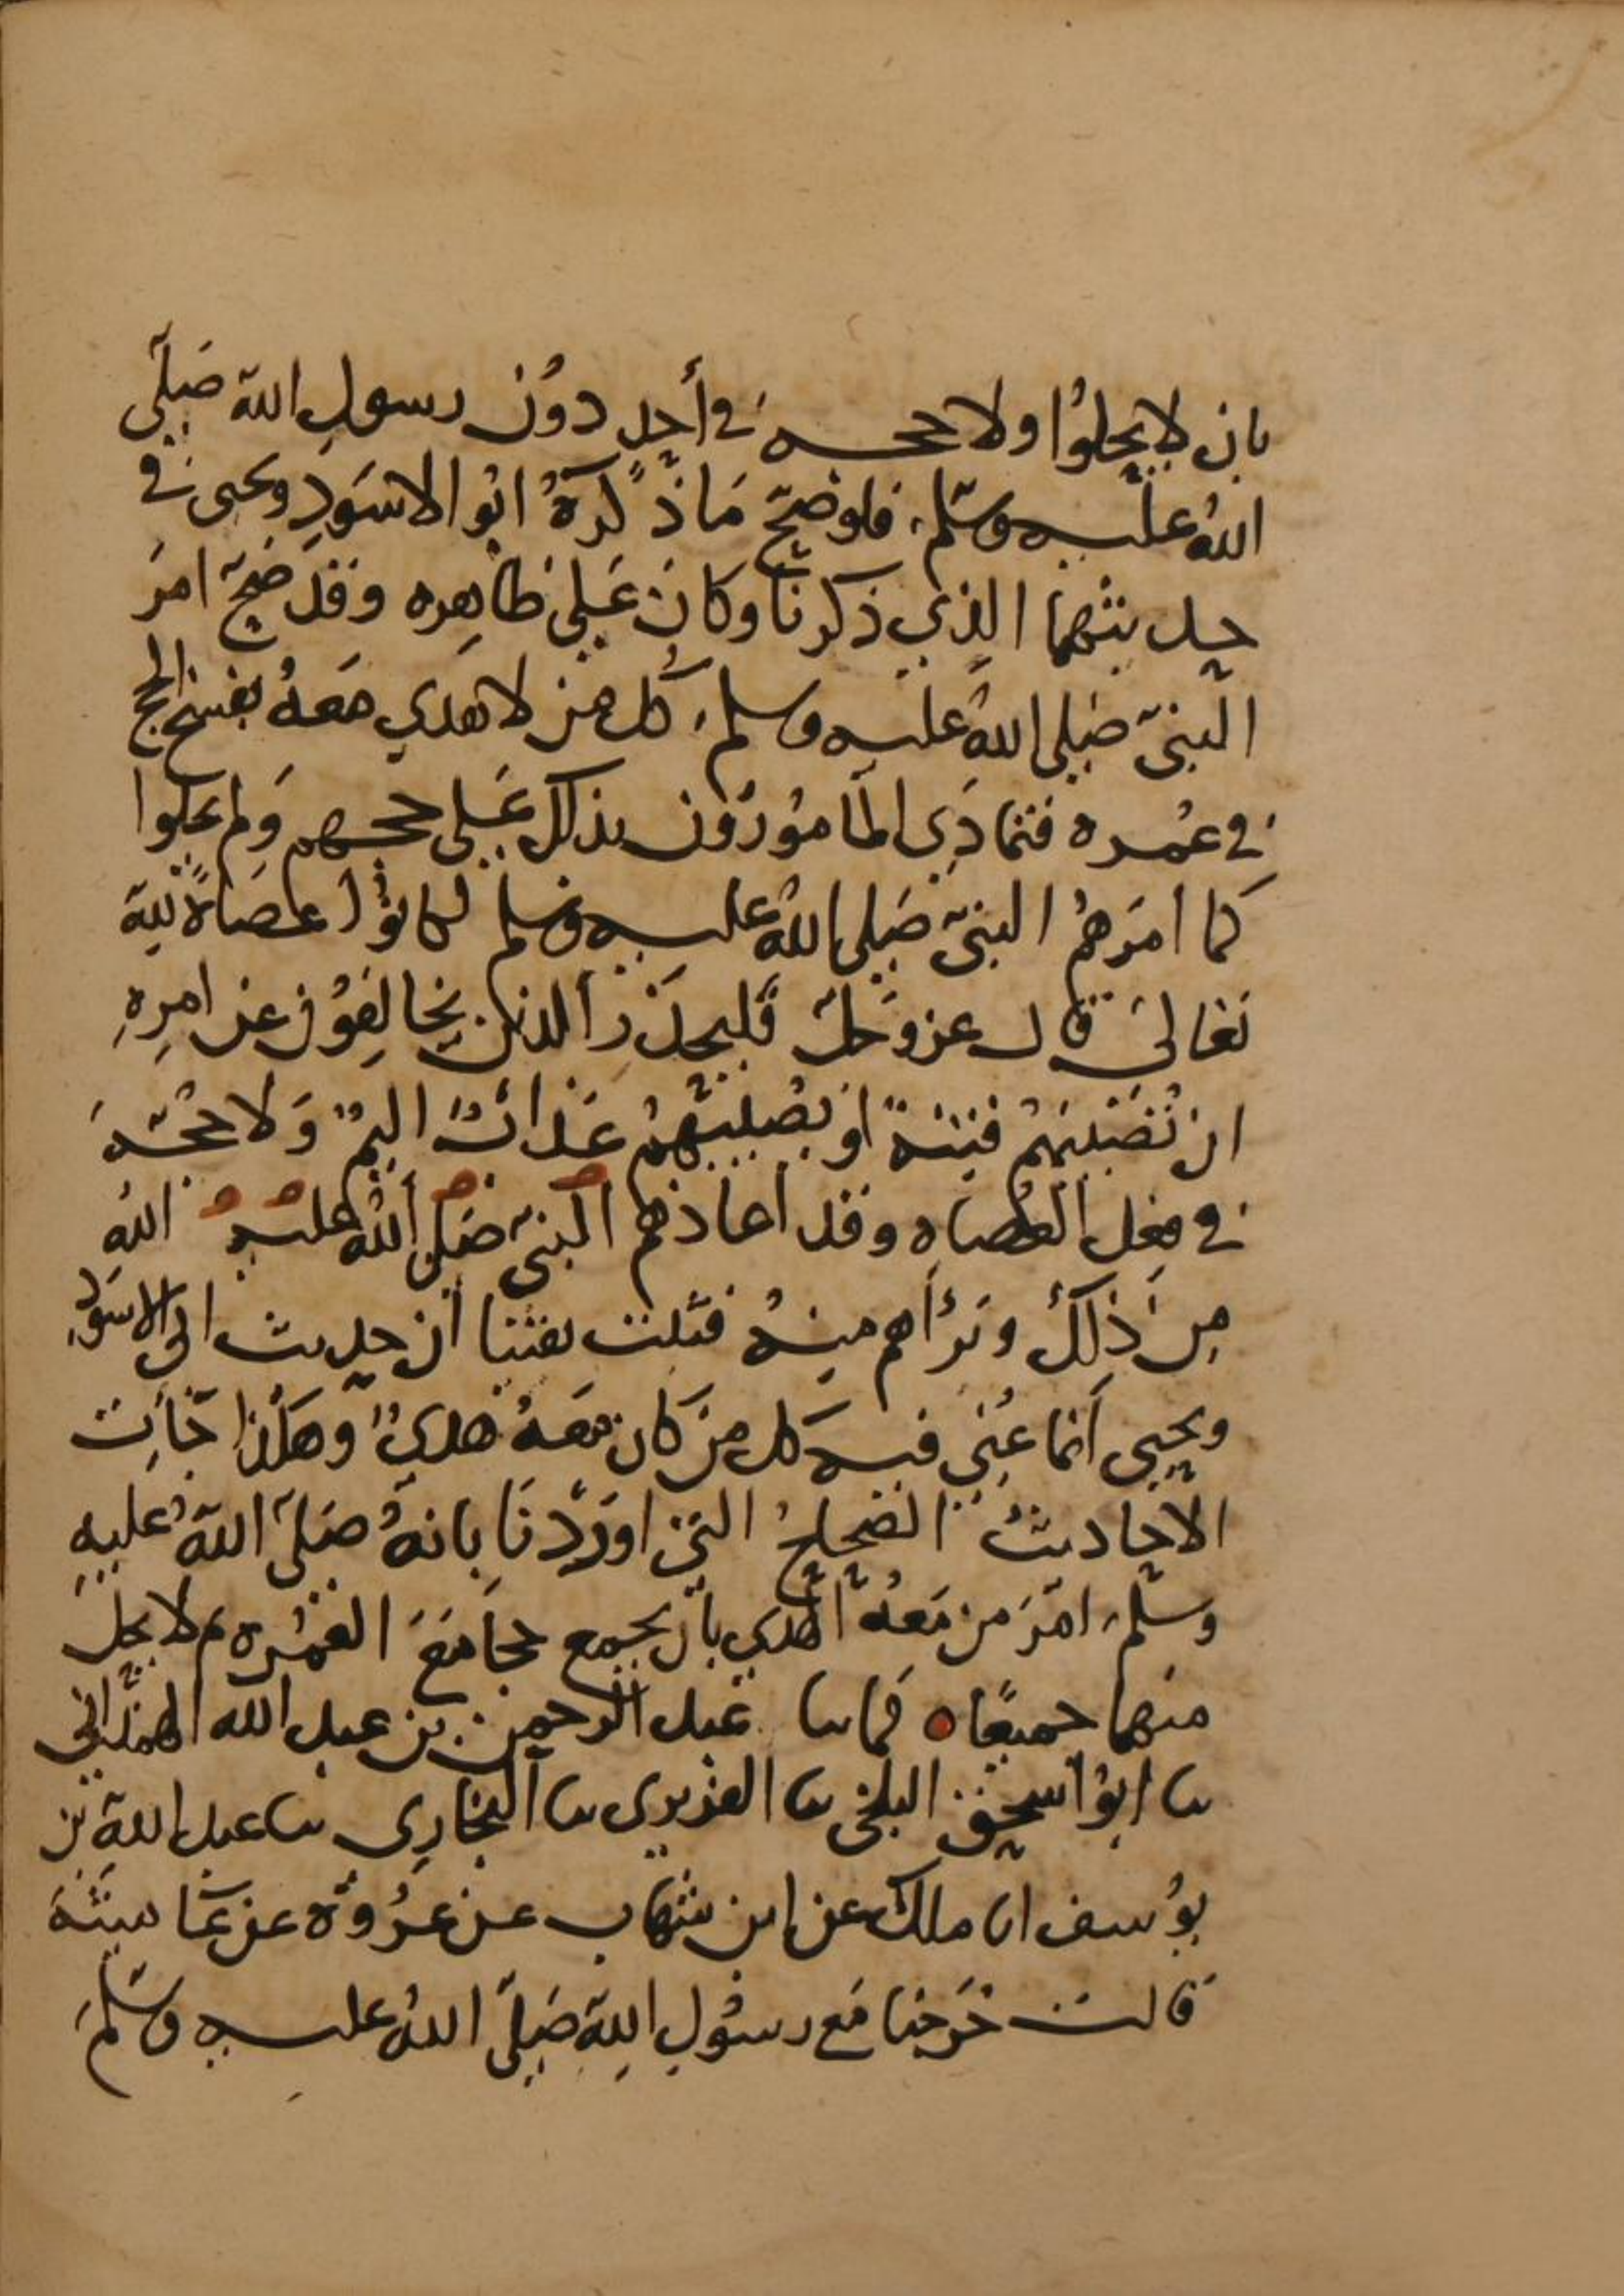 بان لا يحلوا ولا حجه في أحد دون رسول الله صلى
الله عليه وسلم، فلو صح ما ذكره ابو الاسود ويحيى في
حديثهما الذي ذكرنا وكان على ظاهره وقد صح امر
النبي صلى الله عليه وسلم، كل من لا هدي معه بفسخ الحج
في عمره فتمادى المامورون بذلك على حجهم ولم يحلوا
كما امرهم النبي صلى الله عليه وسلم لكانوا عصاة لله
تعالى قال عز وجل فليحذر الذين يخالفون عن امره
ان تصيبهم فتنة او يصيبهم عذاب اليم ولا حجة
في فعل العصاه وقد اعاذهم النبي صلى الله عليه الله
من ذلك وبرأهم منه فثبت يقينا أن حديث ابى الاسود
ويحيى أنما عني فيه كل من كان معه هدي وهكذا جأت
الاحاديث الصحاح التي اوردنا بانه صلى الله عليه
وسلم، امر من معه الهدي بان يجمع حجا مع العمره ثم لا يحل
منهما جميعا ه كما نا عبد الرحمن بن عبد الله الهمداني
نا ابو اسحق البلخي نا الفربري نا البخاري نا عبد الله بن
يوسف انا ملك عن ابن شهاب عن عروة عن عايشة
قالت خرجنا مع رسول الله صلى الله عليه وسلم